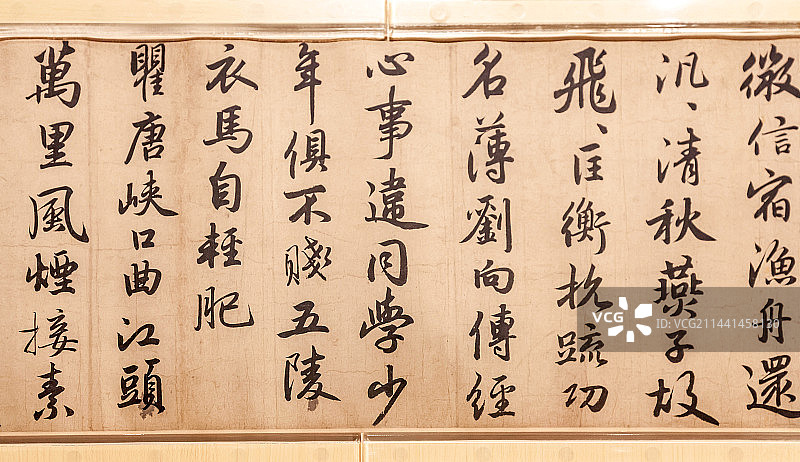 微信宿漁舟還
汎、清秋燕子故
飛、匡衡抗疏功
名薄劉向傳經
心事違同學少
年俱不賤五陵
衣馬自輕肥
瞿唐峽口曲江頭
萬里風煙接素
VCG